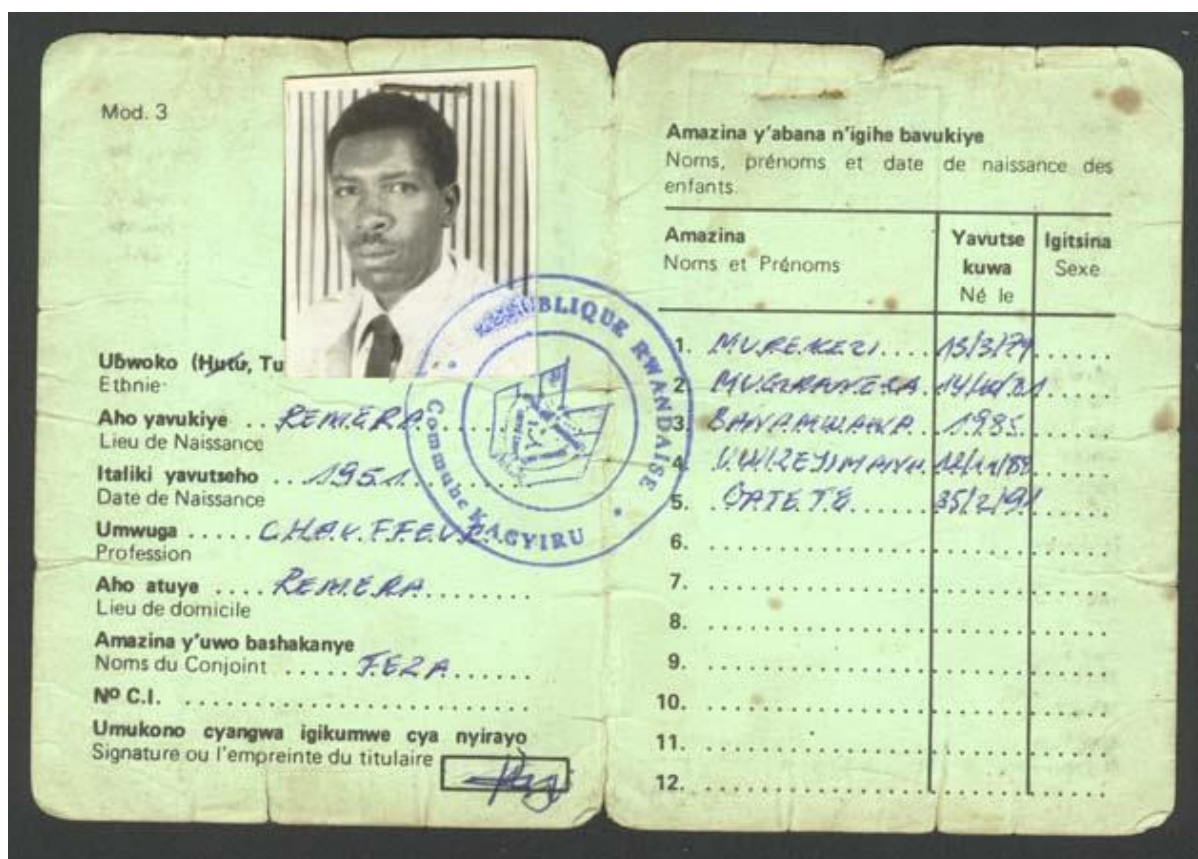 Mod. 3
Ubwoko (Hutu, Tu
Ethnie
Aho yavukiye .. REMERA
Lieu de Naissance
Italiki yavutseho .. 1951
Date de Naissance
Umwuga ..... CHAUFFEUR
Profession
Aho atuye .... REMERA
Lieu de domicile
Amazina y'uwo bashakanye
Noms du Conjoint ..... FEZA
Nº C.I.
Umukono cyangwa igikumwe cya nyirayo
Signature ou l'empreinte du titulaire
REPUBLIQUE RWANDAISE
Commune KACYIRU
Amazina y'abana n'igihe bavukiye
Noms, prénoms et date de naissance des
enfants.
Amazina
Noms et Prénoms
Yavutse
kuwa
Né le
Igitsina
Sexe
1. MUREKEZI
2.
3. 1985
4. UWIZEYIMANA
5.
6.
7.
8.
9.
10.
11.
12.